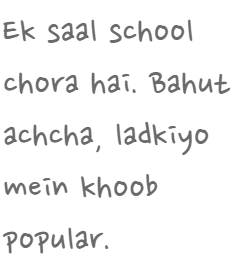 Ek saal school
chora hai. Bahut
achcha, ladkiyo
mein khoob
popular.